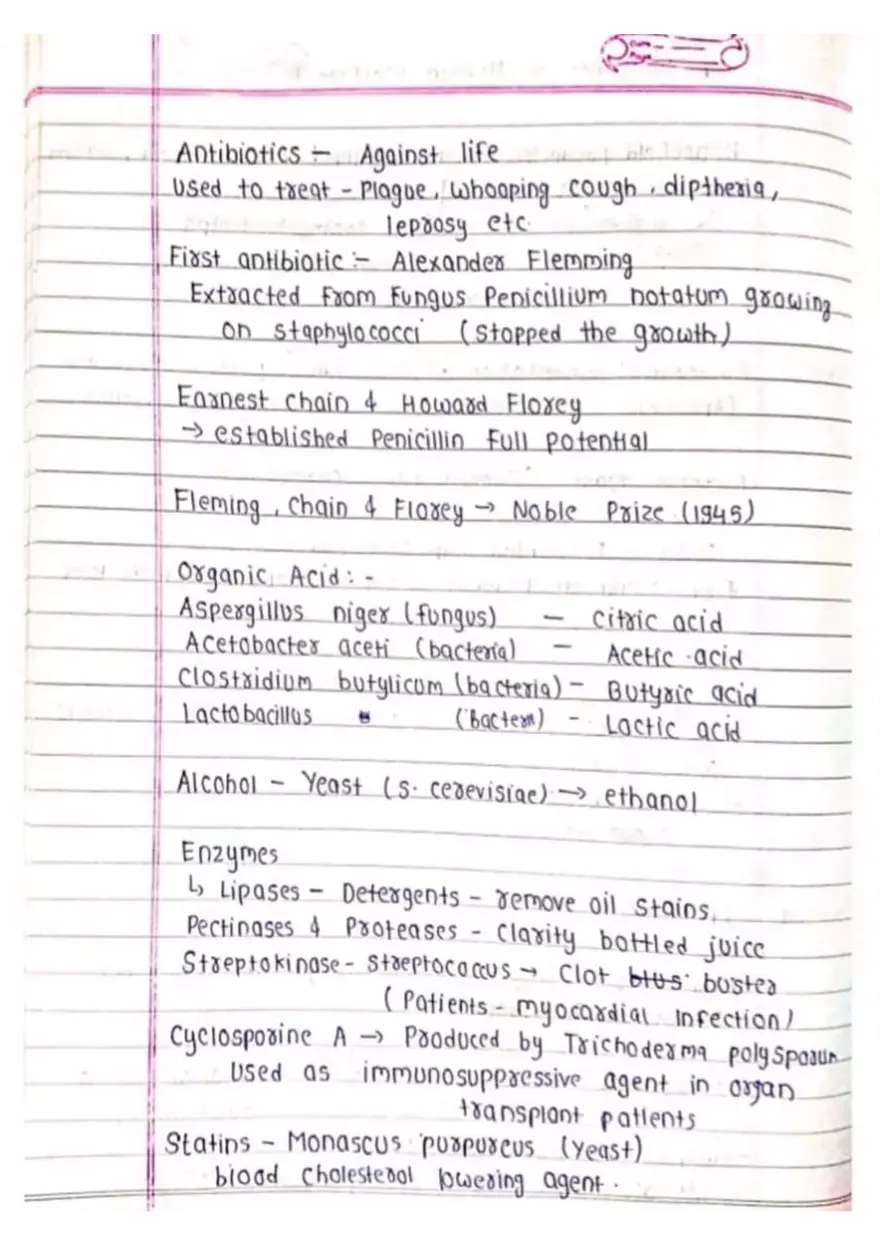 Antibiotics :- Against life
Used to treat - Plague, Whooping cough, diptheria,
leprosy etc.
First antibiotic :- Alexander Flemming
Extracted from Fungus Penicillium notatum growing
on staphylococci (stopped the growth)
Earnest chain & Howard Florey
→ established Penicillin Full potential
Fleming, Chain & Florey → Noble Prize (1945)
Organic Acid : -
Aspergillus niger (fungus) - Citric acid
Acetobacter aceti (bacteria) - Acetic acid
Clostridium butylicum (bacteria) - Butyric acid
Lactobacillus (Bacteria) - Lactic acid
Alcohol - Yeast (S. cerevisiae) → ethanol
Enzymes
↳ Lipases - Detergents - remove oil stains.
Pectinases & Proteases - Clarity bottled juice
Streptokinase - Streptococcus → Clot buster
(Patients - myocardial Infection)
Cyclosporine A → Produced by Trichoderma polysporum
Used as immunosuppressive agent in organ
transplant patients
Statins - Monascus purpureus (Yeast)
blood cholesterol lowering agent.